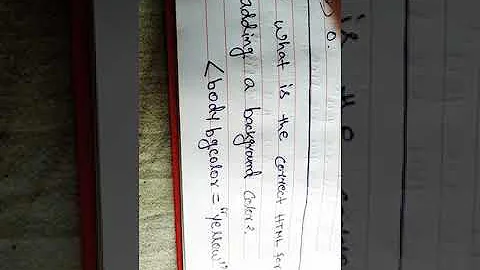 0.
what is the correct HTML for
adding a background color?
<body bgcolor = "yellow"